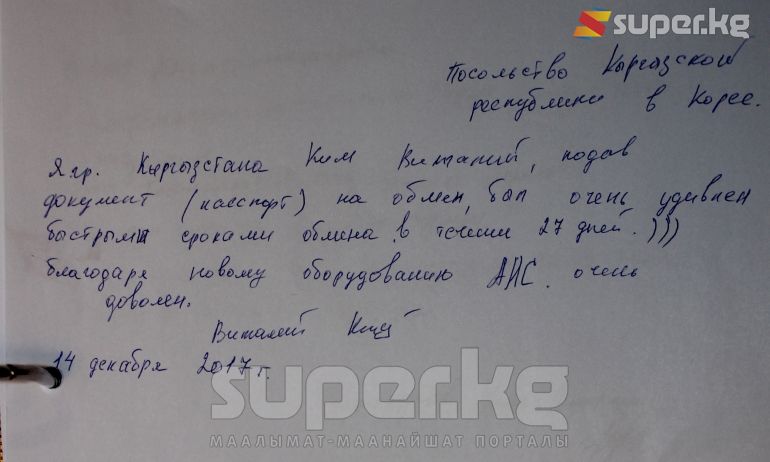 super.kg
Посольство Кыргызской
республики в Корее.
Я гр. Кыргызстана Ким Виталий, подав
документ (пасспорт) на обмен, был очень удивлен
быстрыми сроками обмена в течении 27 дней.)))
благодаря новому оборудованию АПС. очень
доволен.
Виталий Ким
14 декабря 2017 г.
super.kg
МААЛЫМАТ-МААНАЙШАТ ПОРТАЛЫ